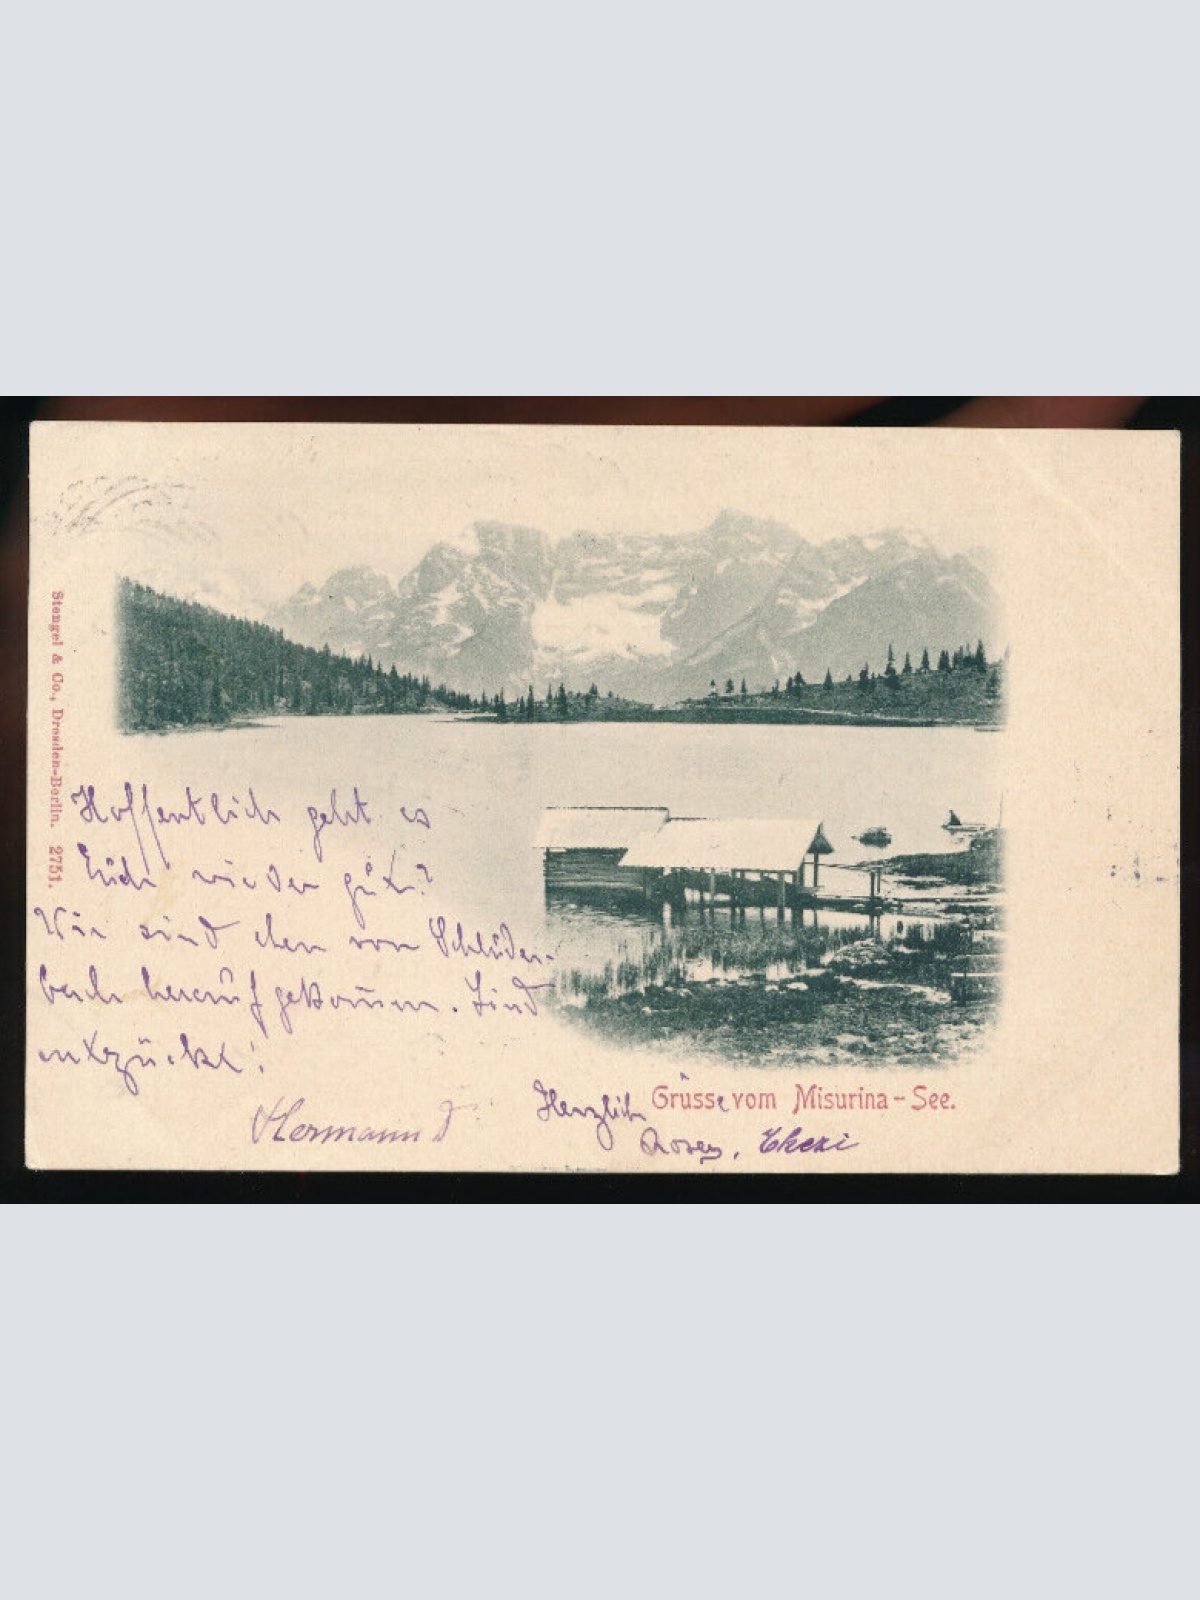 Stengel & Co., Dresden-Berlin. 2751.
Hoffentlich geht es
Euch wieder gut?
Wir sind eben von Schluder-
bach heraufgekommen. Sind
entzückt!
Hermann
Herzlich Grüsse vom Misurina-See.